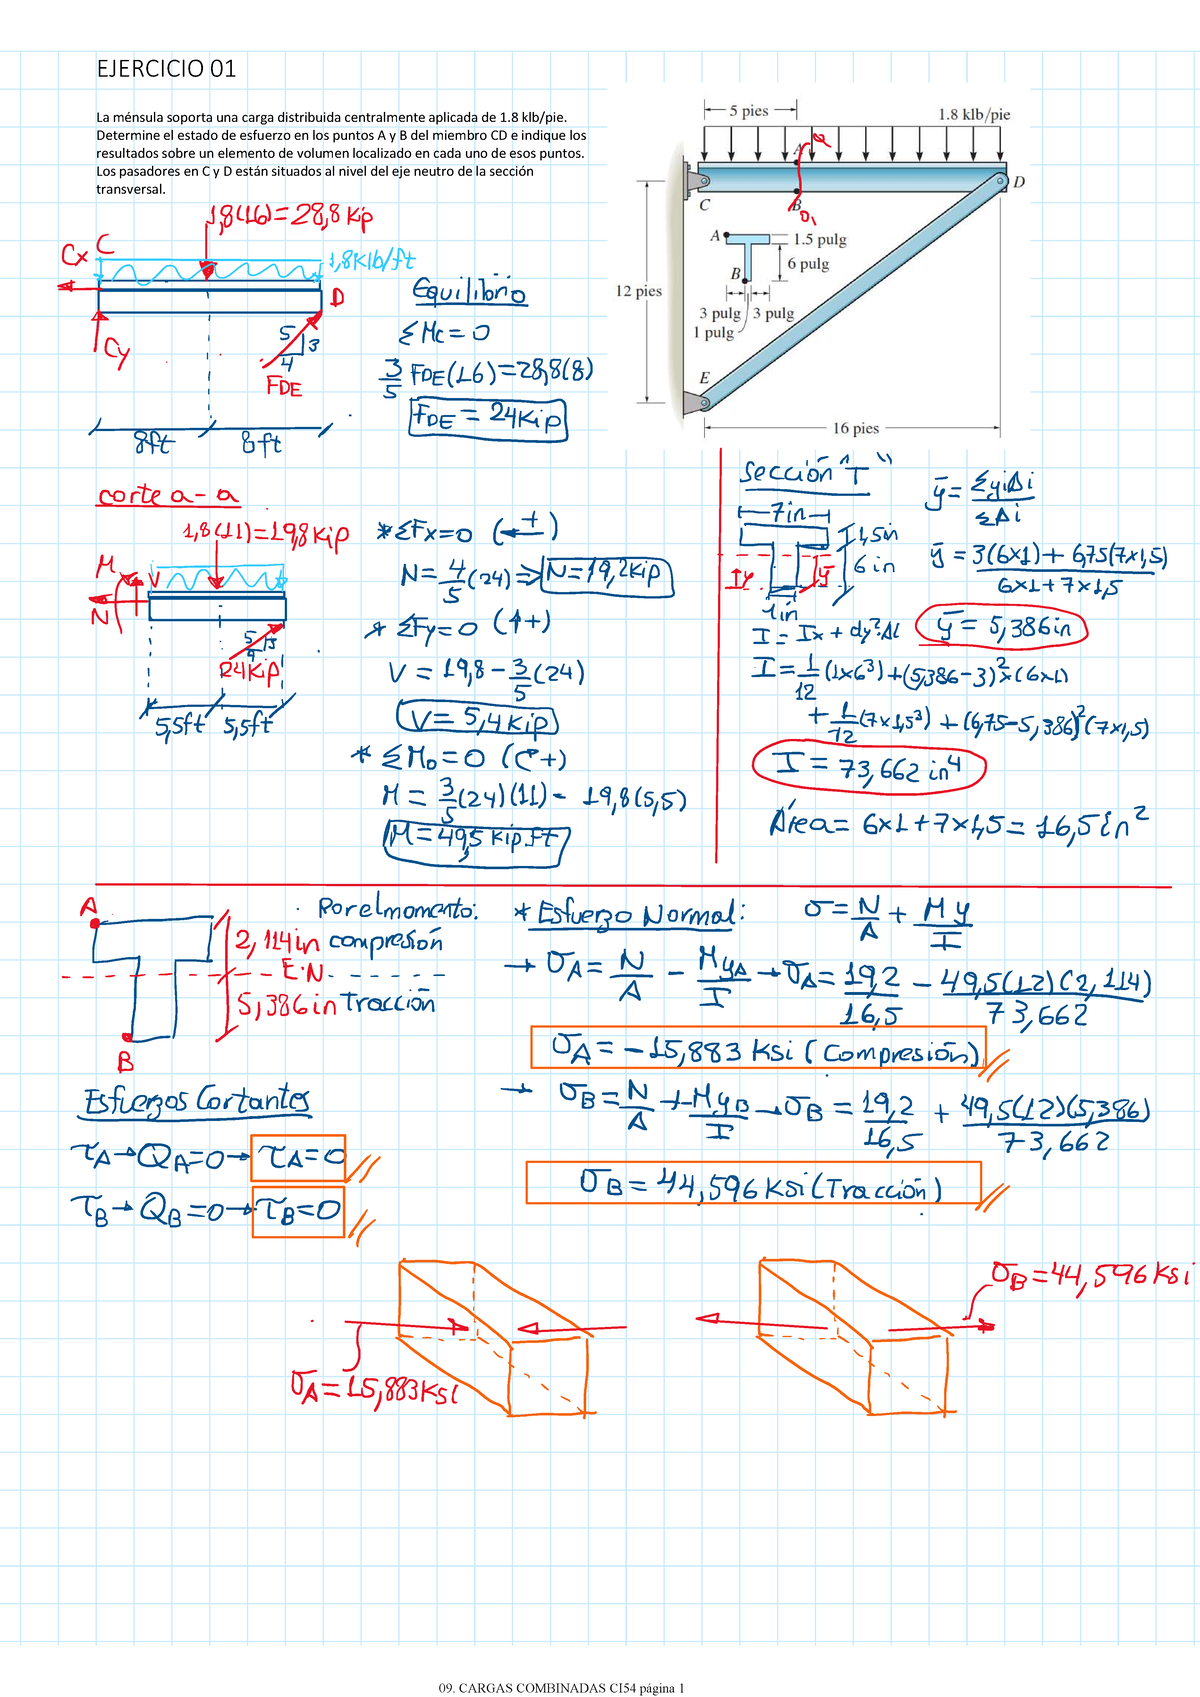 EJERCICIO 01
La ménsula soporta una carga distribuida centralmente aplicada de 1.8 klb/pie.
Determine el estado de esfuerzo en los puntos A y B del miembro CD e indique los
resultados sobre un elemento de volumen localizado en cada uno de esos puntos.
Los pasadores en C y D están situados al nivel del eje neutro de la sección
transversal.
5 pies
1.8 klb/pie
a
A
C
B
D
a
A
1.5 pulg
6 pulg
B
3 pulg
3 pulg
1 pulg
12 pies
E
16 pies
1,8(16)=28,8 Kip
Cx
C
1,8Klb/ft
D
Cy
5
3
4
FDE
8ft
8ft
Equilibrio
ΣMc=0
3/5 FDE(16)=28,8(8)
FDE = 24Kip
corte a-a
1,8(11)=19,8Kip
M
V
N
5
3
4
24Kip
5,5ft
5,5ft
*ΣFx=0 (←+)
N=4/5(24)⇒N=19,2Kip
* ΣFy=0 (↑+)
V = 19,8-3/5(24)
V= 5,4Kip
* ΣMo=0 (↶+)
M = 3/5(24)(11)- 19,8(5,5)
M=49,5 Kip.ft
Sección "T"
7in
1,5in
6in
ȳ
1in
ȳ= ΣyiAi/ΣAi
ȳ = 3(6x1)+ 6,75(7x1,5)/6x1+7x1,5
ȳ= 5,386in
I = Ix + dy².Ai
I=1/12(1x6³)+(5,386-3)²x(6x1)
+1/12(7x1,5³)+(6,75-5,386)²(7x1,5)
I= 73,662 in⁴
Área= 6x1+7x1,5= 16,5in²
A
2,114in compresión
E.N
5,386in Tracción
B
Por el momento:
* Esfuerzo Normal: σ=N/A + My/I
→ σA= N/A - MyA/I → σA= 19,2/16,5 - 49,5(12)(2,114)/73,662
σA= -15,883 Ksi (Compresión)
→ σB=N/A + MyB/I → σB = 19,2/16,5 + 49,5(12)(5,386)/73,662
σB= 44,596 Ksi (Tracción)
Esfuerzos Cortantes
τA→QA=0→ τA=0
τB→QB=0→ τB=0
σA=15,883Ksi
σB=44,596Ksi
09. CARGAS COMBINADAS CI54 página 1